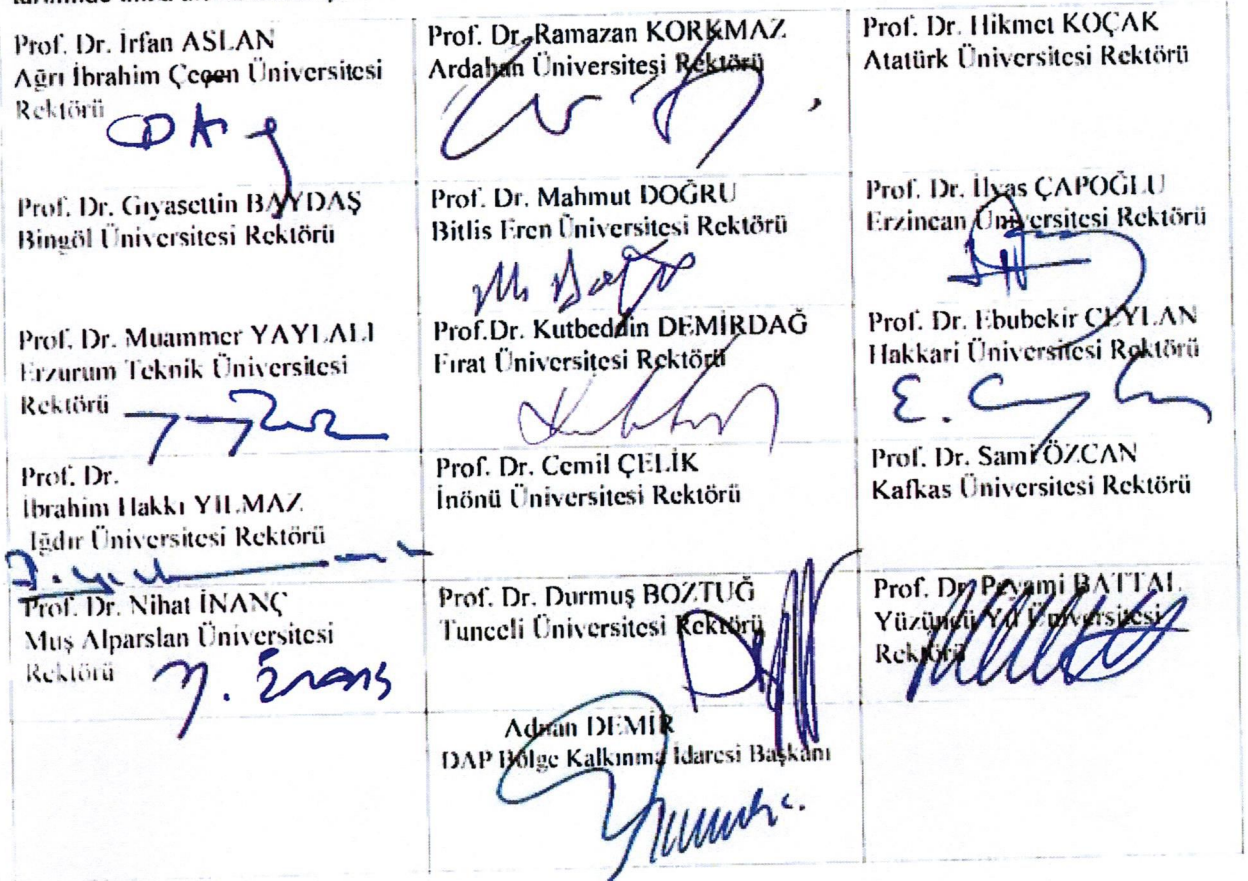 Prof. Dr. İrfan ASLAN
Ağrı İbrahim Çeçen Üniversitesi
Rektörü
Prof. Dr. Ramazan KORKMAZ
Ardahan Üniversitesi Rektörü
Prof. Dr. Hikmet KOÇAK
Atatürk Üniversitesi Rektörü
Prof. Dr. Gıyasettin BAYDAŞ
Bingöl Üniversitesi Rektörü
Prof. Dr. Mahmut DOĞRU
Bitlis Eren Üniversitesi Rektörü
Prof. Dr. İlyas ÇAPOĞLU
Erzincan Üniversitesi Rektörü
Prof. Dr. Muammer YAYLALI
Erzurum Teknik Üniversitesi
Rektörü
Prof.Dr. Kutbeddin DEMİRDAĞ
Fırat Üniversitesi Rektörü
Prof. Dr. Ebubekir CEYLAN
Hakkari Üniversitesi Rektörü
E.
Prof. Dr.
İbrahim Hakkı YILMAZ
Iğdır Üniversitesi Rektörü
Prof. Dr. Cemil ÇELİK
İnönü Üniversitesi Rektörü
Prof. Dr. Sami ÖZCAN
Kafkas Üniversitesi Rektörü
Prof. Dr. Nihat İNANÇ
Muş Alparslan Üniversitesi
Rektörü
Prof. Dr. Durmuş BOZTUĞ
Tunceli Üniversitesi Rektörü
Prof. Dr. Peyami BATTAL
Yüzüncü Yıl Üniversitesi
Rektörü
Adnan DEMİR
DAP Bölge Kalkınma İdaresi Başkanı